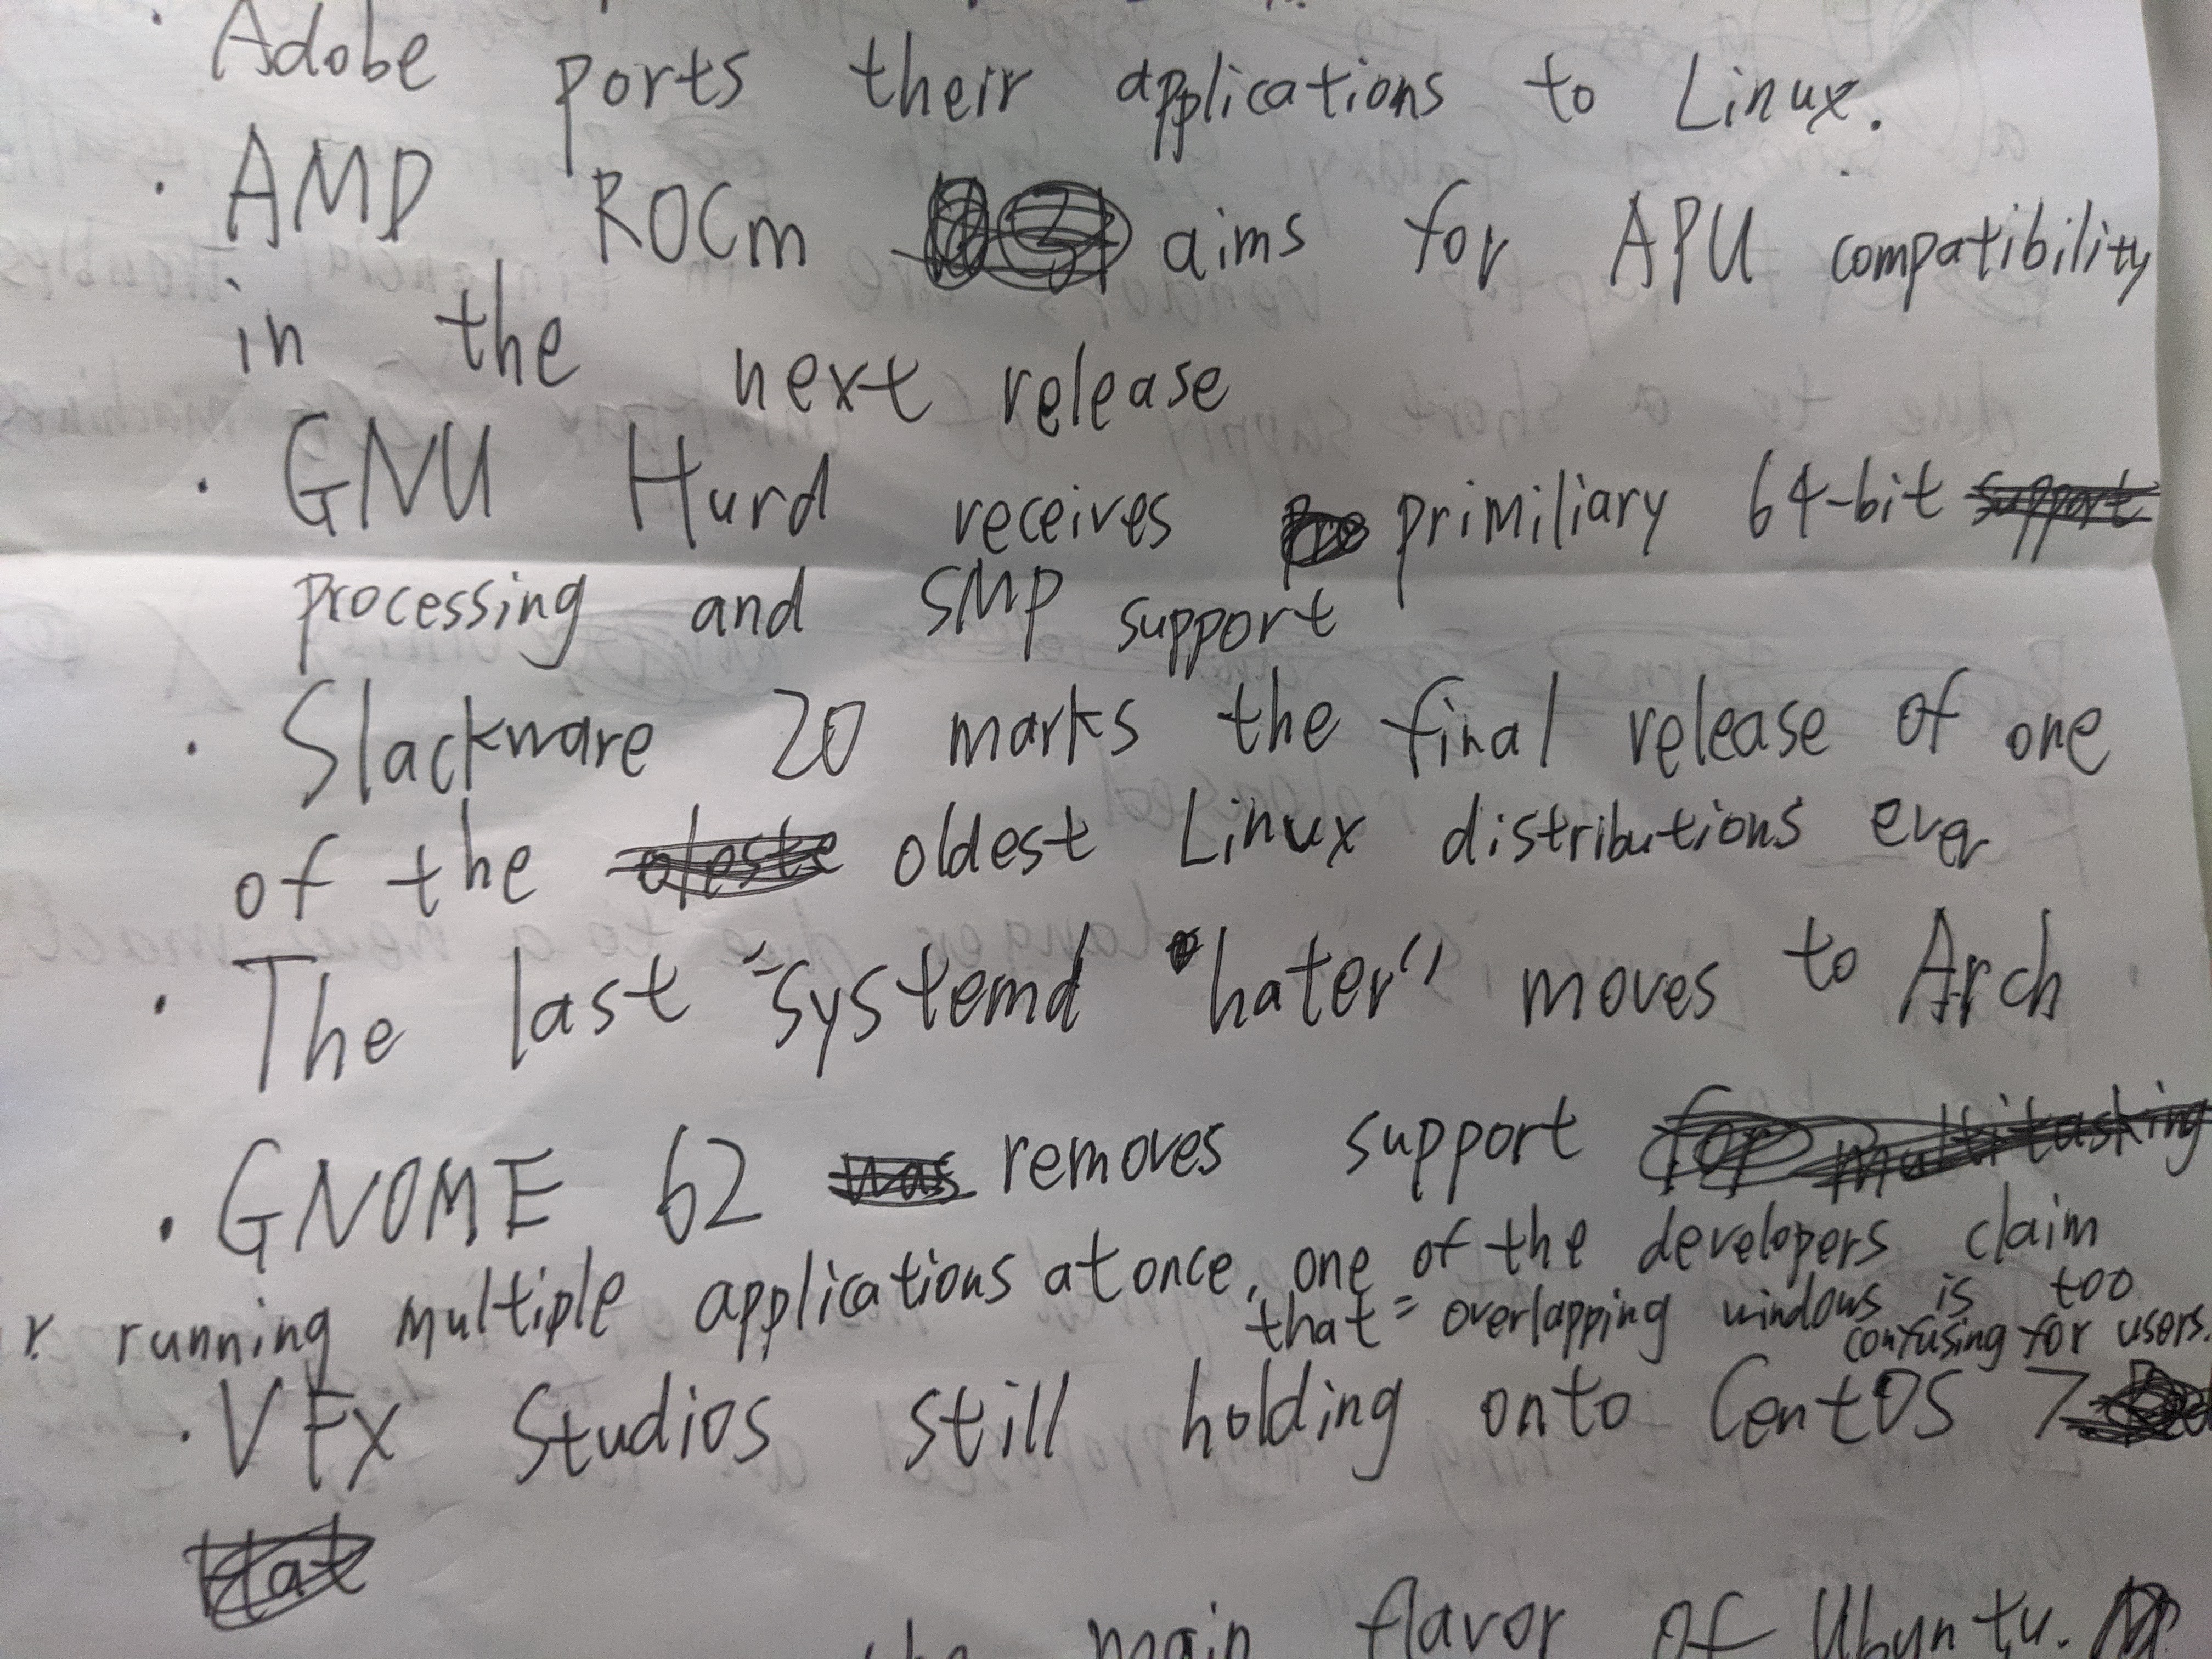 · Adobe ports their applications to Linux.
· AMD ROCm aims for APU compatibility
in the next release
· GNU Hurd receives primiliary 64-bit support
processing and SMP support
· Slackware 20 marks the final release of one
of the oldest Linux distributions ever
· The last "systemd hater" moves to Arch
· GNOME 62 was removes support for multitasking
r running multiple applications at once, one of the developers claim
that "overlapping windows is too
confusing for users.
· VFX Studios still holding onto CentOS 7
Hat
the main flavor of Ubuntu.